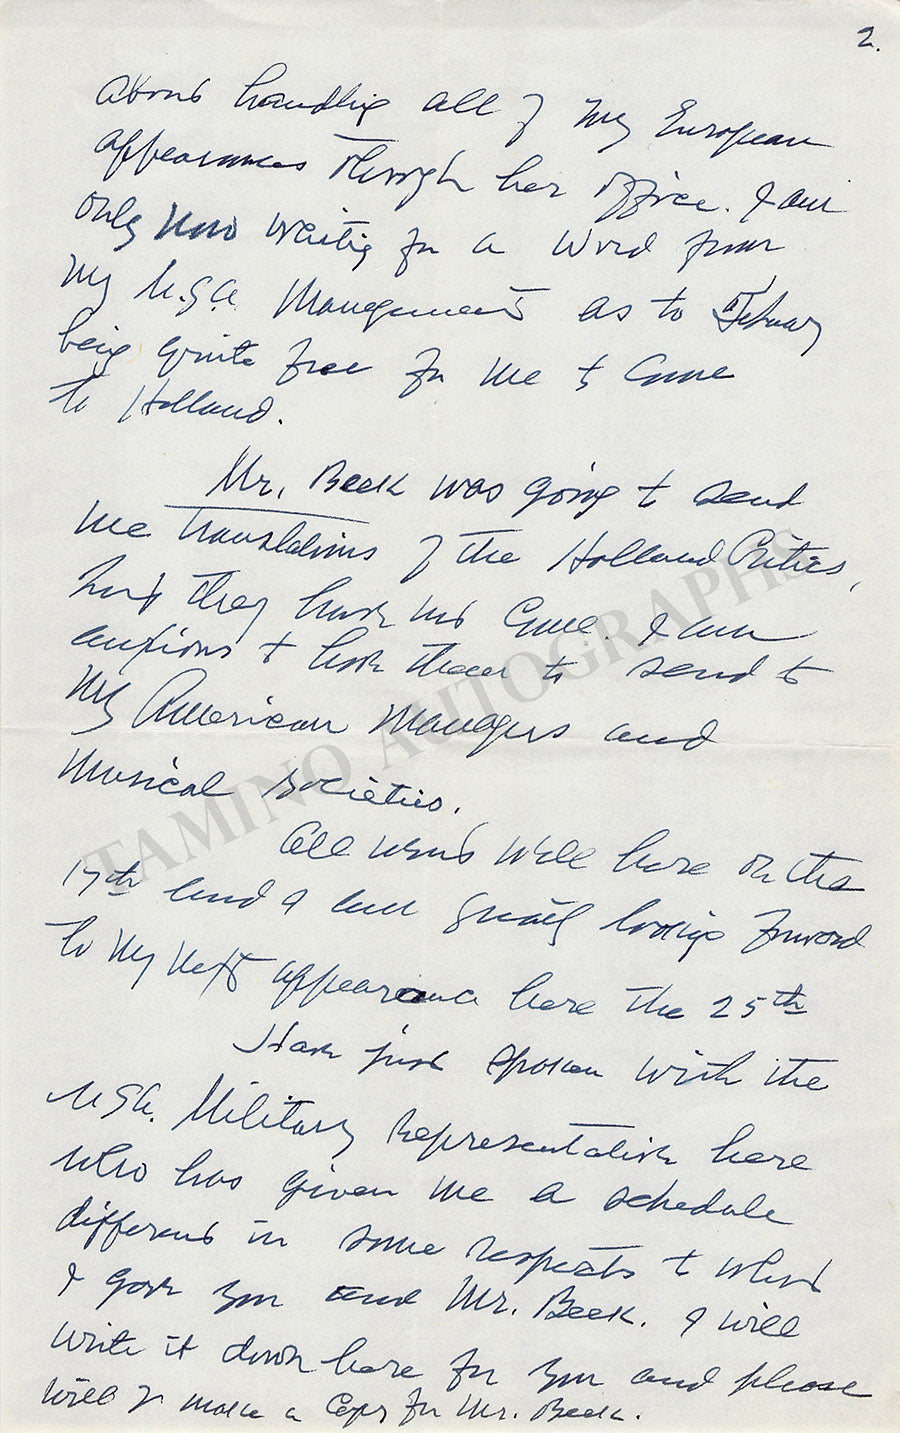 2.
about handling all of my European
appearances through her office. I am
only now waiting for a word from
my U.S.A. Management as to February
being quite free for me to come
to Holland.
Mr. Beek was going to send
me translations of the Holland Critics,
but they have not come. I am
anxious to have them to send to
my American Managers and
Musical Societies.
All went well here on the
17th and I am greatly looking forward
to my next appearance here the 25th
Have just spoken with the
USA. Military Representative here
who has given me a schedule
different in some respects to what
I gave you and Mr. Beek. I will
write it down here for you and please
will you make a copy for Mr. Beek.
TAMINO AUTOGRAPHS